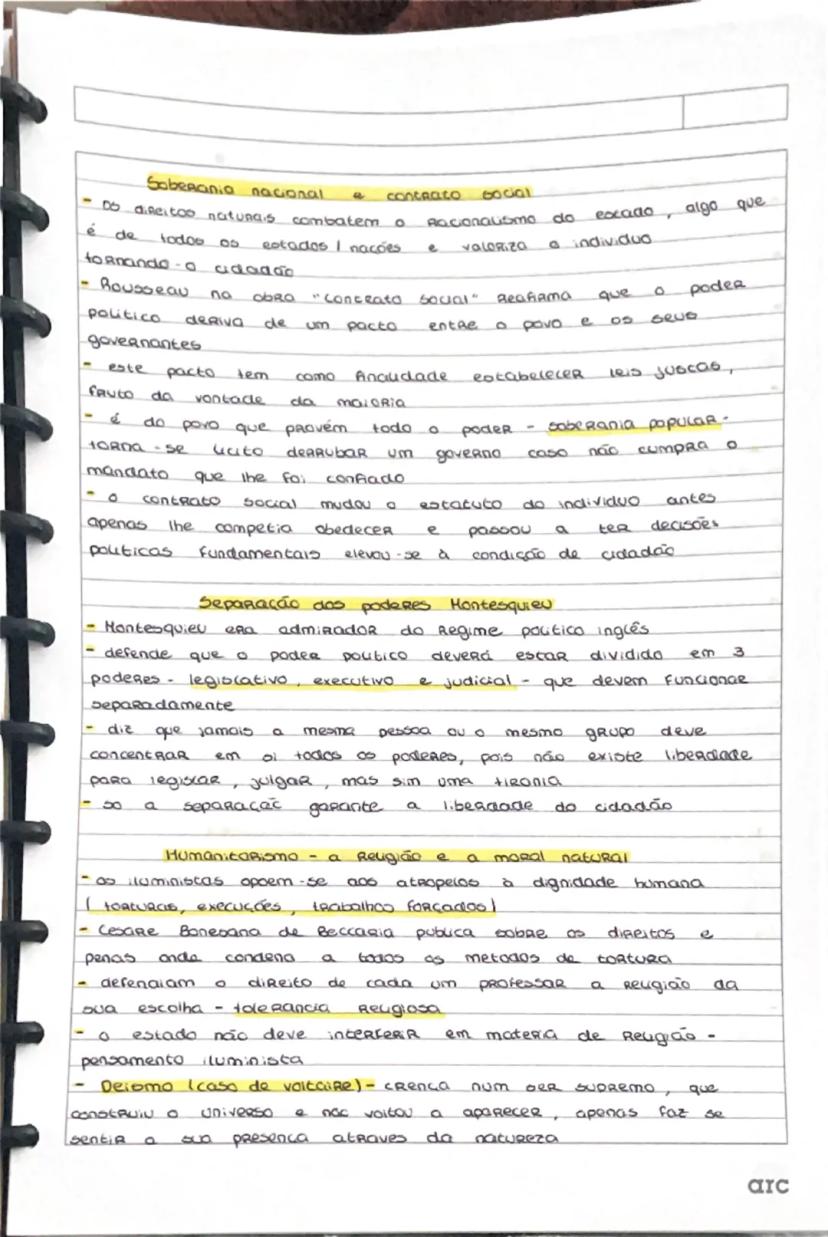 Soberania nacional e contrato social
- Os direitos naturais combatem o racionalismo do estado, algo que
é de todos os estados / nações e valoriza o individuo
tornando-o cidadão
- Rousseau na obra "Contrato Social" reafirma que o poder
politico deriva de um pacto entre o povo e os seus
governantes
- este pacto tem como finalidade estabelecer leis justas,
fruto da vontade da maioria
- é do povo que provém todo o poder - soberania popular -
torna-se licito derrubar um governo caso não cumpra o
mandato que lhe foi confiado
- o contrato social mudou o estatuto do individuo antes
apenas lhe competia obedecer e passou a ter decisões
politicas fundamentais elevou-se à condição de cidadão
Separação dos poderes Montesquieu
- Montesquieu era admirador do regime politico inglês
- defende que o poder politico deverá estar dividido em 3
poderes - legislativo, executivo e judicial - que devem funcionar
separadamente
- diz que jamais a mesma pessoa ou o mesmo grupo deve
concentrar em si todos os poderes, pois não existe liberdade
para legislar, julgar, mas sim uma tirania
- so a separação garante a liberdade do cidadão
Humanitarismo - a religião e a moral natural
- os iluministas opoem-se aos atropelos à dignidade humana
( torturas, execuções, trabalhos forçados)
- Cesare Bonesana de Beccaria publica sobre os direitos e
penas onde condena a todos os metodos de tortura
- defendiam o direito de cada um professar a religião da
sua escolha - tolerancia religiosa
- o estado não deve interferir em materia de religião -
pensamento iluminista
- Deismo (caso de voltaire) - crença num ser supremo, que
construiu o universo e não voltou a aparecer, apenas faz se
sentir a sua presença atraves da natureza
arc